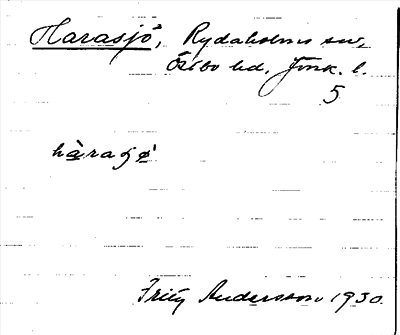 Harasjö, Rydaholms sn,
Östbo hd. Jönk. l.
5
hàraʃø`
Fritz Andersson 1930.